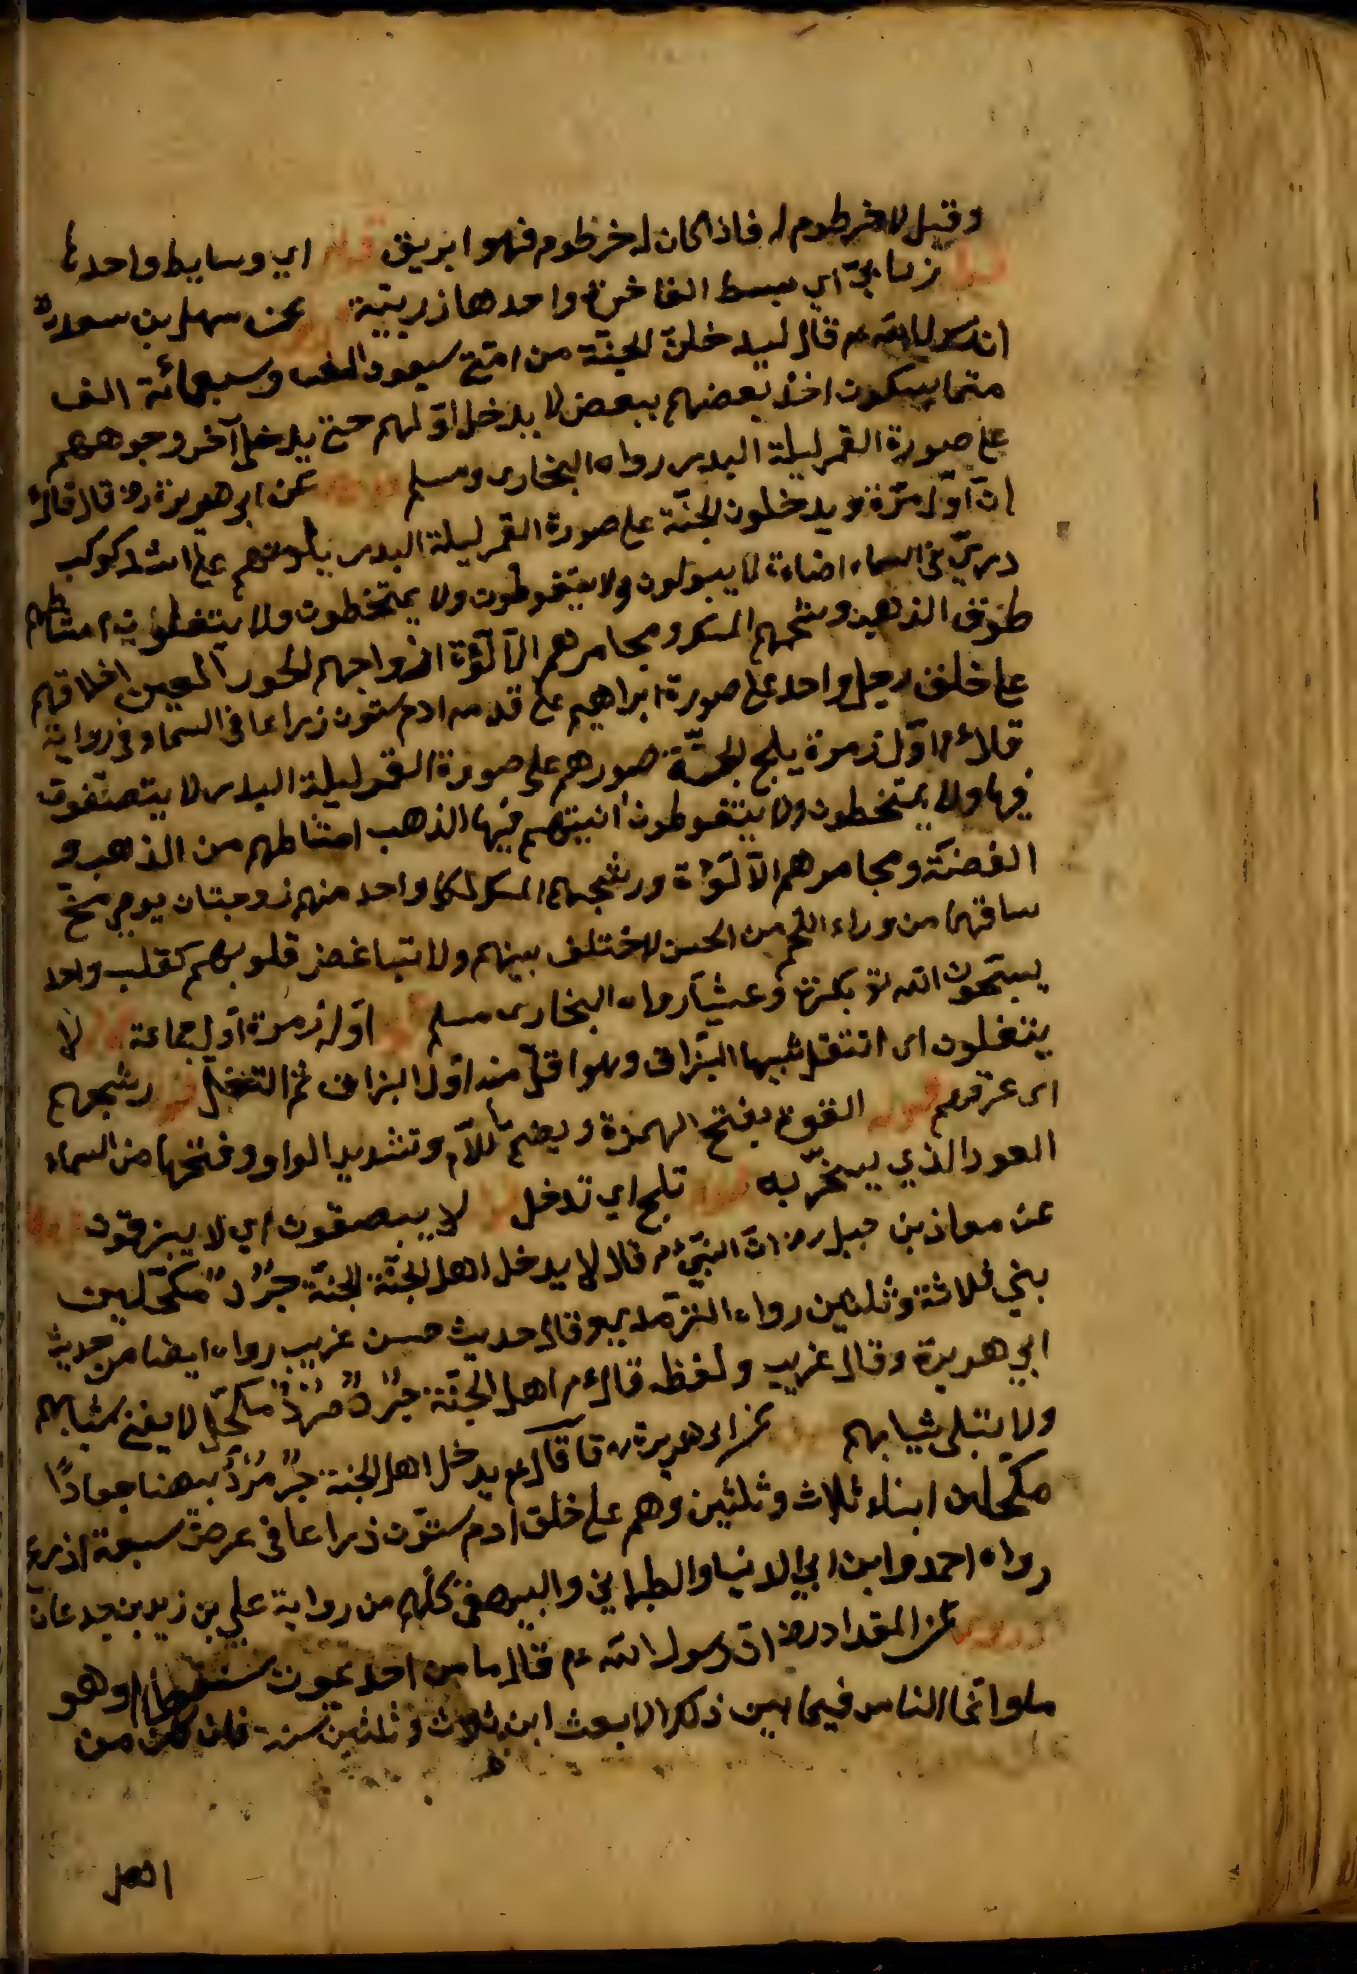 وقيل لا خرطوم له فاذا كان له خرظوم فهو ابريق قوله اي وسايط واحدها
قوله زرابيّ اي بسط الفاخرة واحدها زربيّة عن سهل بن سعد رض
ان رسول الله عم قال ليدخلنّ الجنّة من امّتي سبعون الف وسبعمائة الف
متماسكون اخذ بعضهم ببعض لا يدخل اوّلهم حتى يدخل آخر وجوههم
على صورة القمر ليلة البدر رواه البخارى ومسلم عن ابى هريرة رض قال قال
انّ اوّل زمرة يدخلون الجنّة على صورة القمر ليلة البدر يلونهم على اشد كوكب
دريّ في السماء اضاءة لا يبولون ولا يتغوطون ولا يمتخطون ولا يتفلون امشاطهم
الذهب ورشحهم المسك ومجامرهم الألوّة ازواجهم الحور العين اخلاقهم
على خلق رجل واحد على صورة ابراهيم على قد ادم ستون زراعا فى السماء وفى رواية
قال اوّل زمرة يلج الجنّة صورهم على صورة القمر ليلة البدر لا يتصقون
فيها ولا يمتخطون ولا يتغوطون انيتهم فيها الذهب امشاطهم من الذهب و
الفضّة ومجامرهم الألوّة ورشحهم المسك لكل واحد منهم زوجتان يرى مخّ
ساقهما من وراء اللحم من الحسن لا ختلف بينهم ولا تباغض قلوبهم كقلب واحد
يسبّحون الله تع بكرة وعشيّا رواه البخارى مسلم اوله زمرة اوّل جماعة قوله لا
يتفلون اى التفل شبيها البزاق وهو اقلّ منه اوّل البزاق ثمّ التفل قوله رشحهم
اى عرقهم قوله القوة بفتح الهمزة ويضمّ اللام وتشديد الواو وفتحها من السماء
العود الذي يبخّر به قوله تلج اي تدخل قوله لا يبصقون اي لا يبزقون
عن معاذ بن جبل رض انّ النبيّ م قال لا يدخل اهل الجنّة الجنّة جرّد مكحّلين
بني ثلاثة وثلثين رواه الترمدي وقال حديث حسن غريب رواه ايضا من حديث
ابي هريرة وقال غريب ولفظه قال م اهل الجنّة جرّد مرد مكحّل لا يفنى شبابهم
ولا تبلى ثيابهم عن ابى هريرة رض قا قال عم يدخل اهل الجنة جرّ مردّ بيضا جعادًا
مكحّلين ابناء ثلاث وثلثين وهم على خلق ادم ستّون ذراعا فى عرض سبعة اذرع
رواه احمد وابن ابي الدنيا والطبراني والبيهقى كلّهم من رواية علي بن زيد بن جدعان
عن المقداد رض انّ رسول الله عم قال ما من احد يموت سقطا وهو
ما وانما الناس فيما بين ذلك الا بعث ابن ثلاث وثلثين سنة فان كان من
اهل